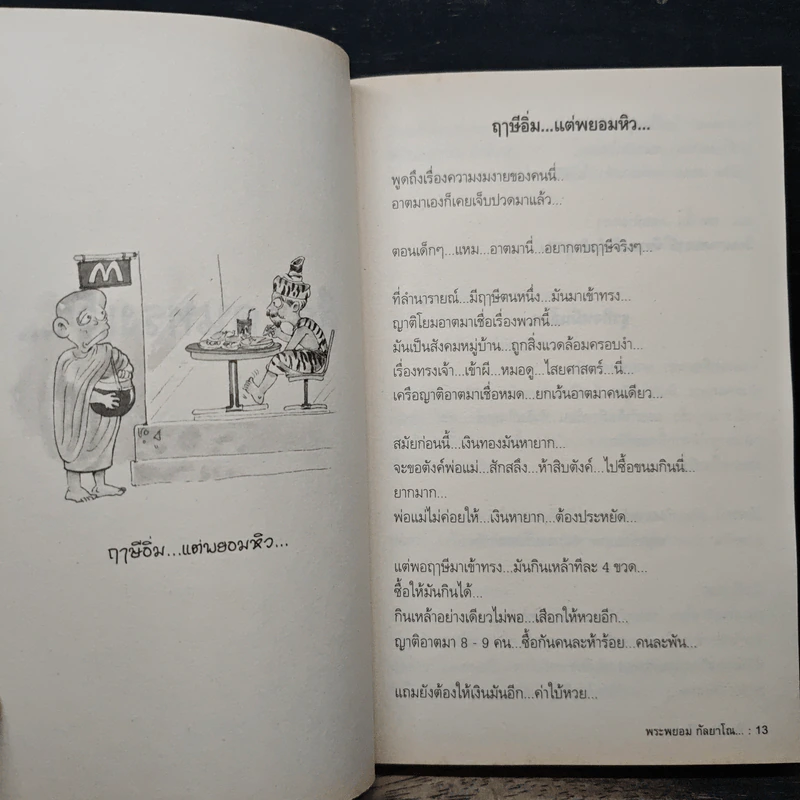 M
ฤๅษีอิ่ม...แต่พยอมหิว...
ฤๅษีอิ่ม...แต่พยอมหิว...
พูดถึงเรื่องความงมงายของคนนี่..
อาตมาเองก็เคยเจ็บปวดมาแล้ว...
ตอนเด็กๆ...แหม...อาตมานี่...อยากตบฤๅษีจริงๆ...
ที่ลำนารายณ์...มีฤๅษีตนหนึ่ง...มันมาเข้าทรง...
ญาติโยมอาตมาเชื่อเรื่องพวกนี้...
มันเป็นสังคมหมู่บ้าน...ถูกสิ่งแวดล้อมครอบงำ...
เรื่องทรงเจ้า...เข้าผี...หมอดู...ไสยศาสตร์...นี่...
เครือญาติอาตมาเชื่อหมด...ยกเว้นอาตมาคนเดียว...
สมัยก่อนนี้...เงินทองมันหายาก...
จะขอตังค์พ่อแม่...สักสลึง...ห้าสิบตังค์...ไปซื้อขนมกินนี่...
ยากมาก...
พ่อแม่ไม่ค่อยให้...เงินหายาก...ต้องประหยัด...
แต่พอฤๅษีมาเข้าทรง...มันกินเหล้าทีละ 4 ขวด...
ซื้อให้มันกินได้...
กินเหล้าอย่างเดียวไม่พอ...เสือกให้หวยอีก...
ญาติอาตมา 8 - 9 คน...ซื้อกันคนละห้าร้อย...คนละพัน...
แถมยังต้องให้เงินมันอีก...ค่าใบ้หวย...
พระพยอม กัลยาโณ... : 13